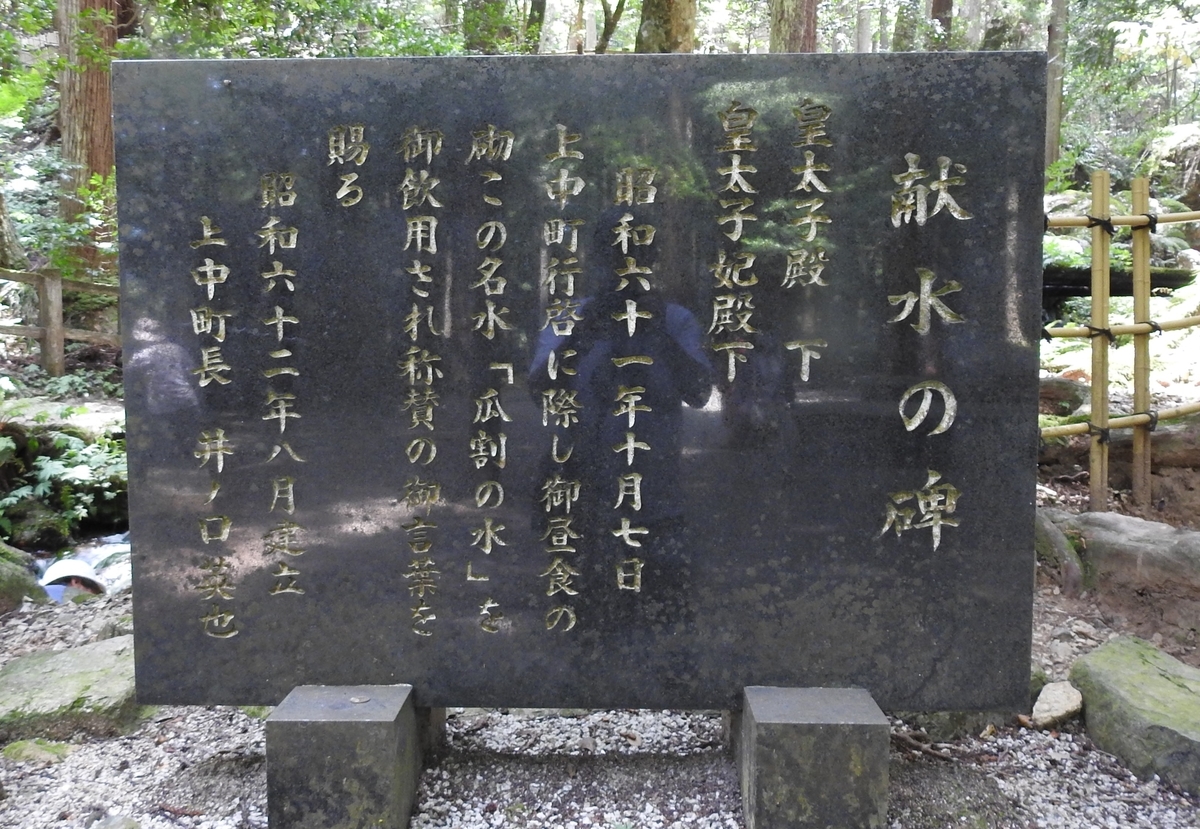 献水の碑
皇太子殿下
皇太子妃殿下
昭和六十一年十月七日
上中町行啓に際し御昼食の
砌この名水「瓜割の水」を
御飲用され称賛の御言葉を
賜る
昭和六十二年八月建立
上中町長 井ノ口英也